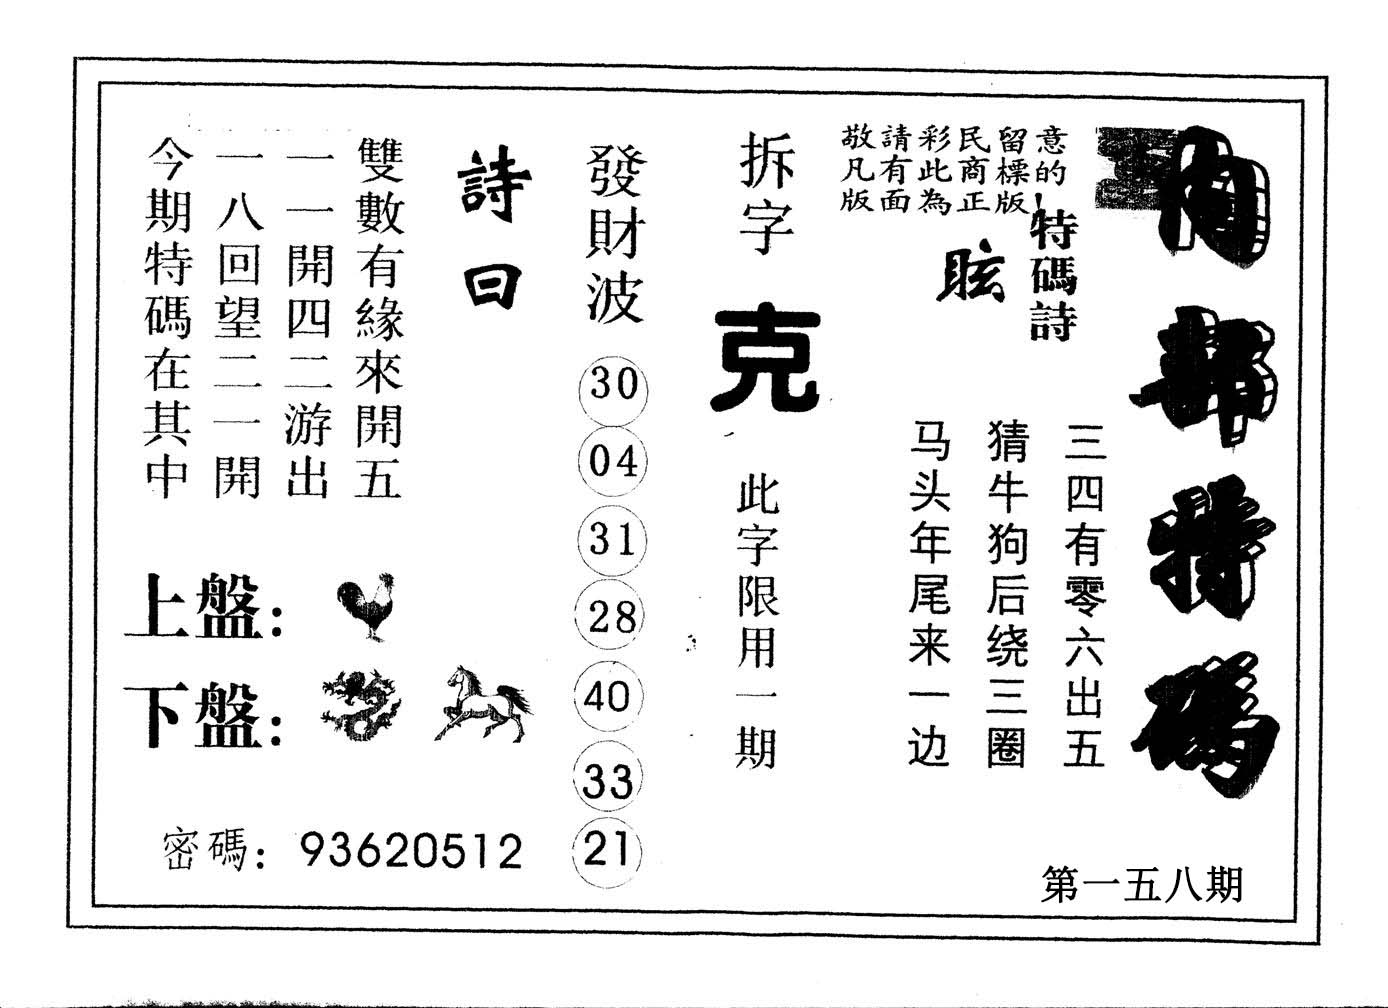 內部特碼
意的
留標版
民商正
彩此為
請有面
敬凡版
特碼詩
眩
三四有零六出五
猜牛狗后绕三圈
马头年尾来一边
第一五八期
拆字
克
此字限用一期
發財波
30
04
31
28
40
33
21
詩曰
雙數有緣來開五
一一開四二游出
一八回望二一開
今期特碼在其中
上盤:
下盤:
密碼: 93620512